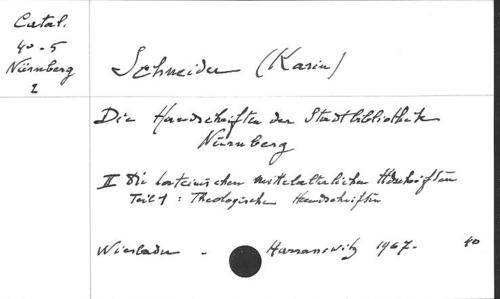 Catal.
40-5
Nürnberg
2
Schneider (Karin)
Die Handschriften der Stadtbibliothek
Nürnberg
II Die lateinischen mittelalterlichen Hdschriften
Teil 1 : Theologische Handschriften
Wiesbaden - Harrassowitz 1967. 40